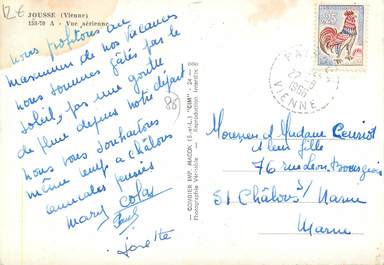 12€
JOUSSE (Vienne)
153-70 A - Vue aérienne
nous profitons au
maximum de nos vacances
nous sommes gâtés par le
soleil, pas une goutte
de pluie depuis notre départ
nous vous souhaitons
même temps à châlons
amicales pensées
Mary Colas
Paul
Josette
86
COMBIER IMP. MACON (S.-et-L.) "CIM"
Photographie Véritable - Reproduction Interdite
25
22-
VIENNE
Monsieur et Madame Couriot
et leur fille
76 rue Léon Bourgeois
51 Châlons s/ Marne
Marne